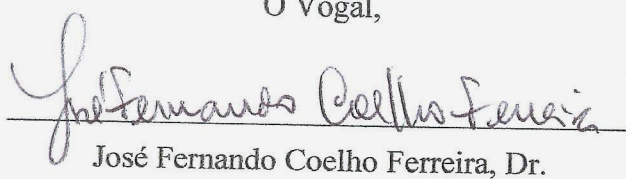 O Vogal,
José Fernando Coelho Ferreira
José Fernando Coelho Ferreira, Dr.